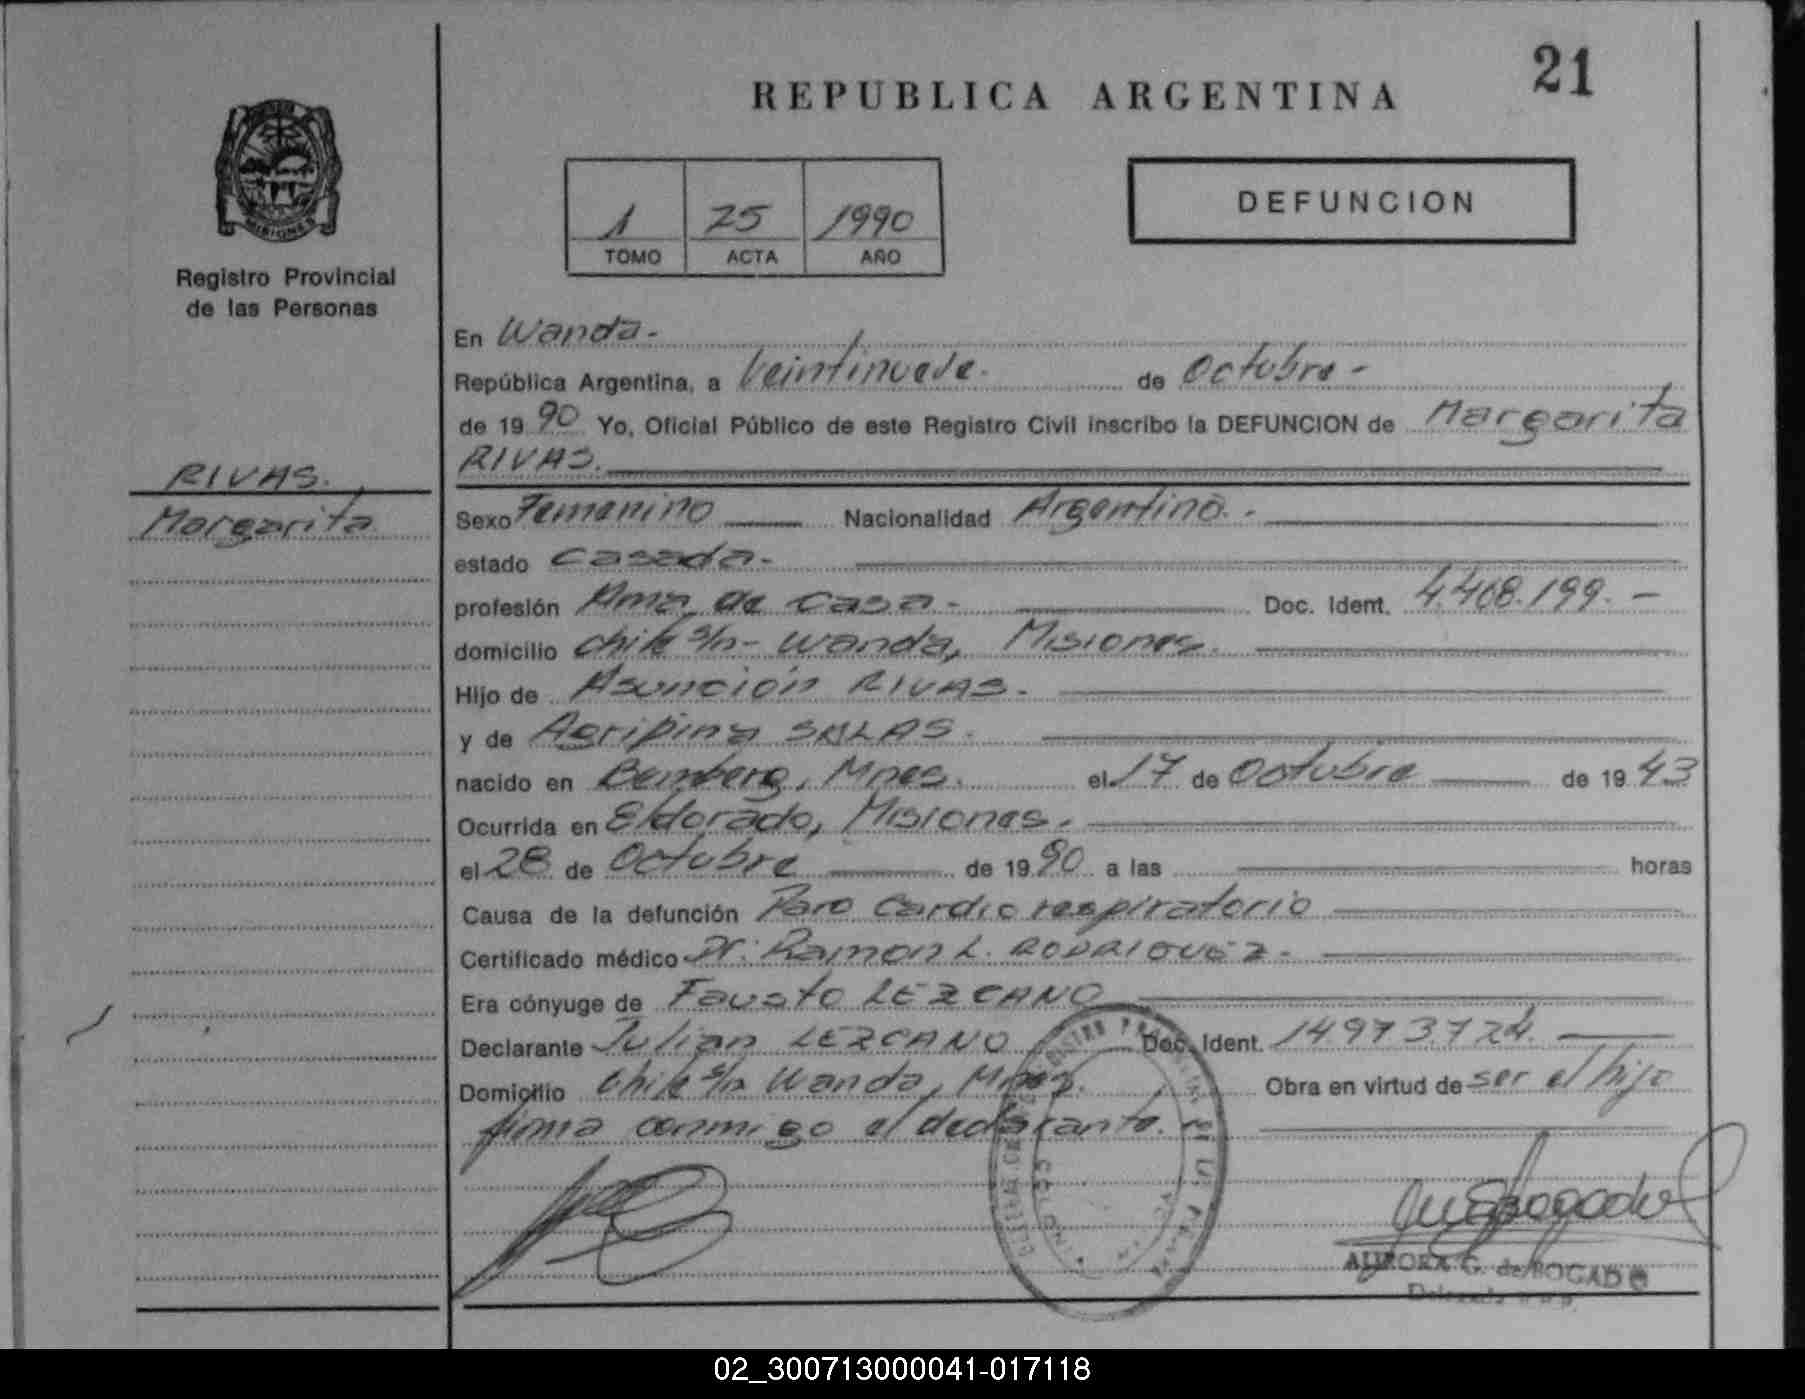 21
REPUBLICA ARGENTINA
MISIONES
Registro Provincial
de las Personas
1 25 1990
TOMO ACTA AÑO
DEFUNCION
En Wanda.-
República Argentina, a Veintinueve.- de Octubre-
de 1990 Yo, Oficial Público de este Registro Civil inscribo la DEFUNCION de Margarita
RIVAS.
RIVAS.
Margarita
Sexo Femenino Nacionalidad Argentina.-
estado Casada.-
profesión Ama de Casa.- Doc. Ident. 4.408.199.-
domicilio Chile s/n- Wanda, Misiones.
Hijo de Asunción RIVAS.-
y de Agripina SALAS.
nacido en Bemberg, Mnes. el 17 de Octubre de 1943
Ocurrida en Eldorado, Misiones.
el 28 de Octubre de 1990 a las horas
Causa de la defunción Paro Cardio respiratorio
Certificado médico Dr. Ramon L. RODRIGUEZ.-
Era cónyuge de Fausto LEZCANO
Declarante Julian LEZCANO Doc. Ident. 14973.724.
Domicilio Chile s/n Wanda, Mnes. Obra en virtud de ser el hijo
firma conmigo el declarante.
AURORA G. de BOGADO
02_300713000041-017118